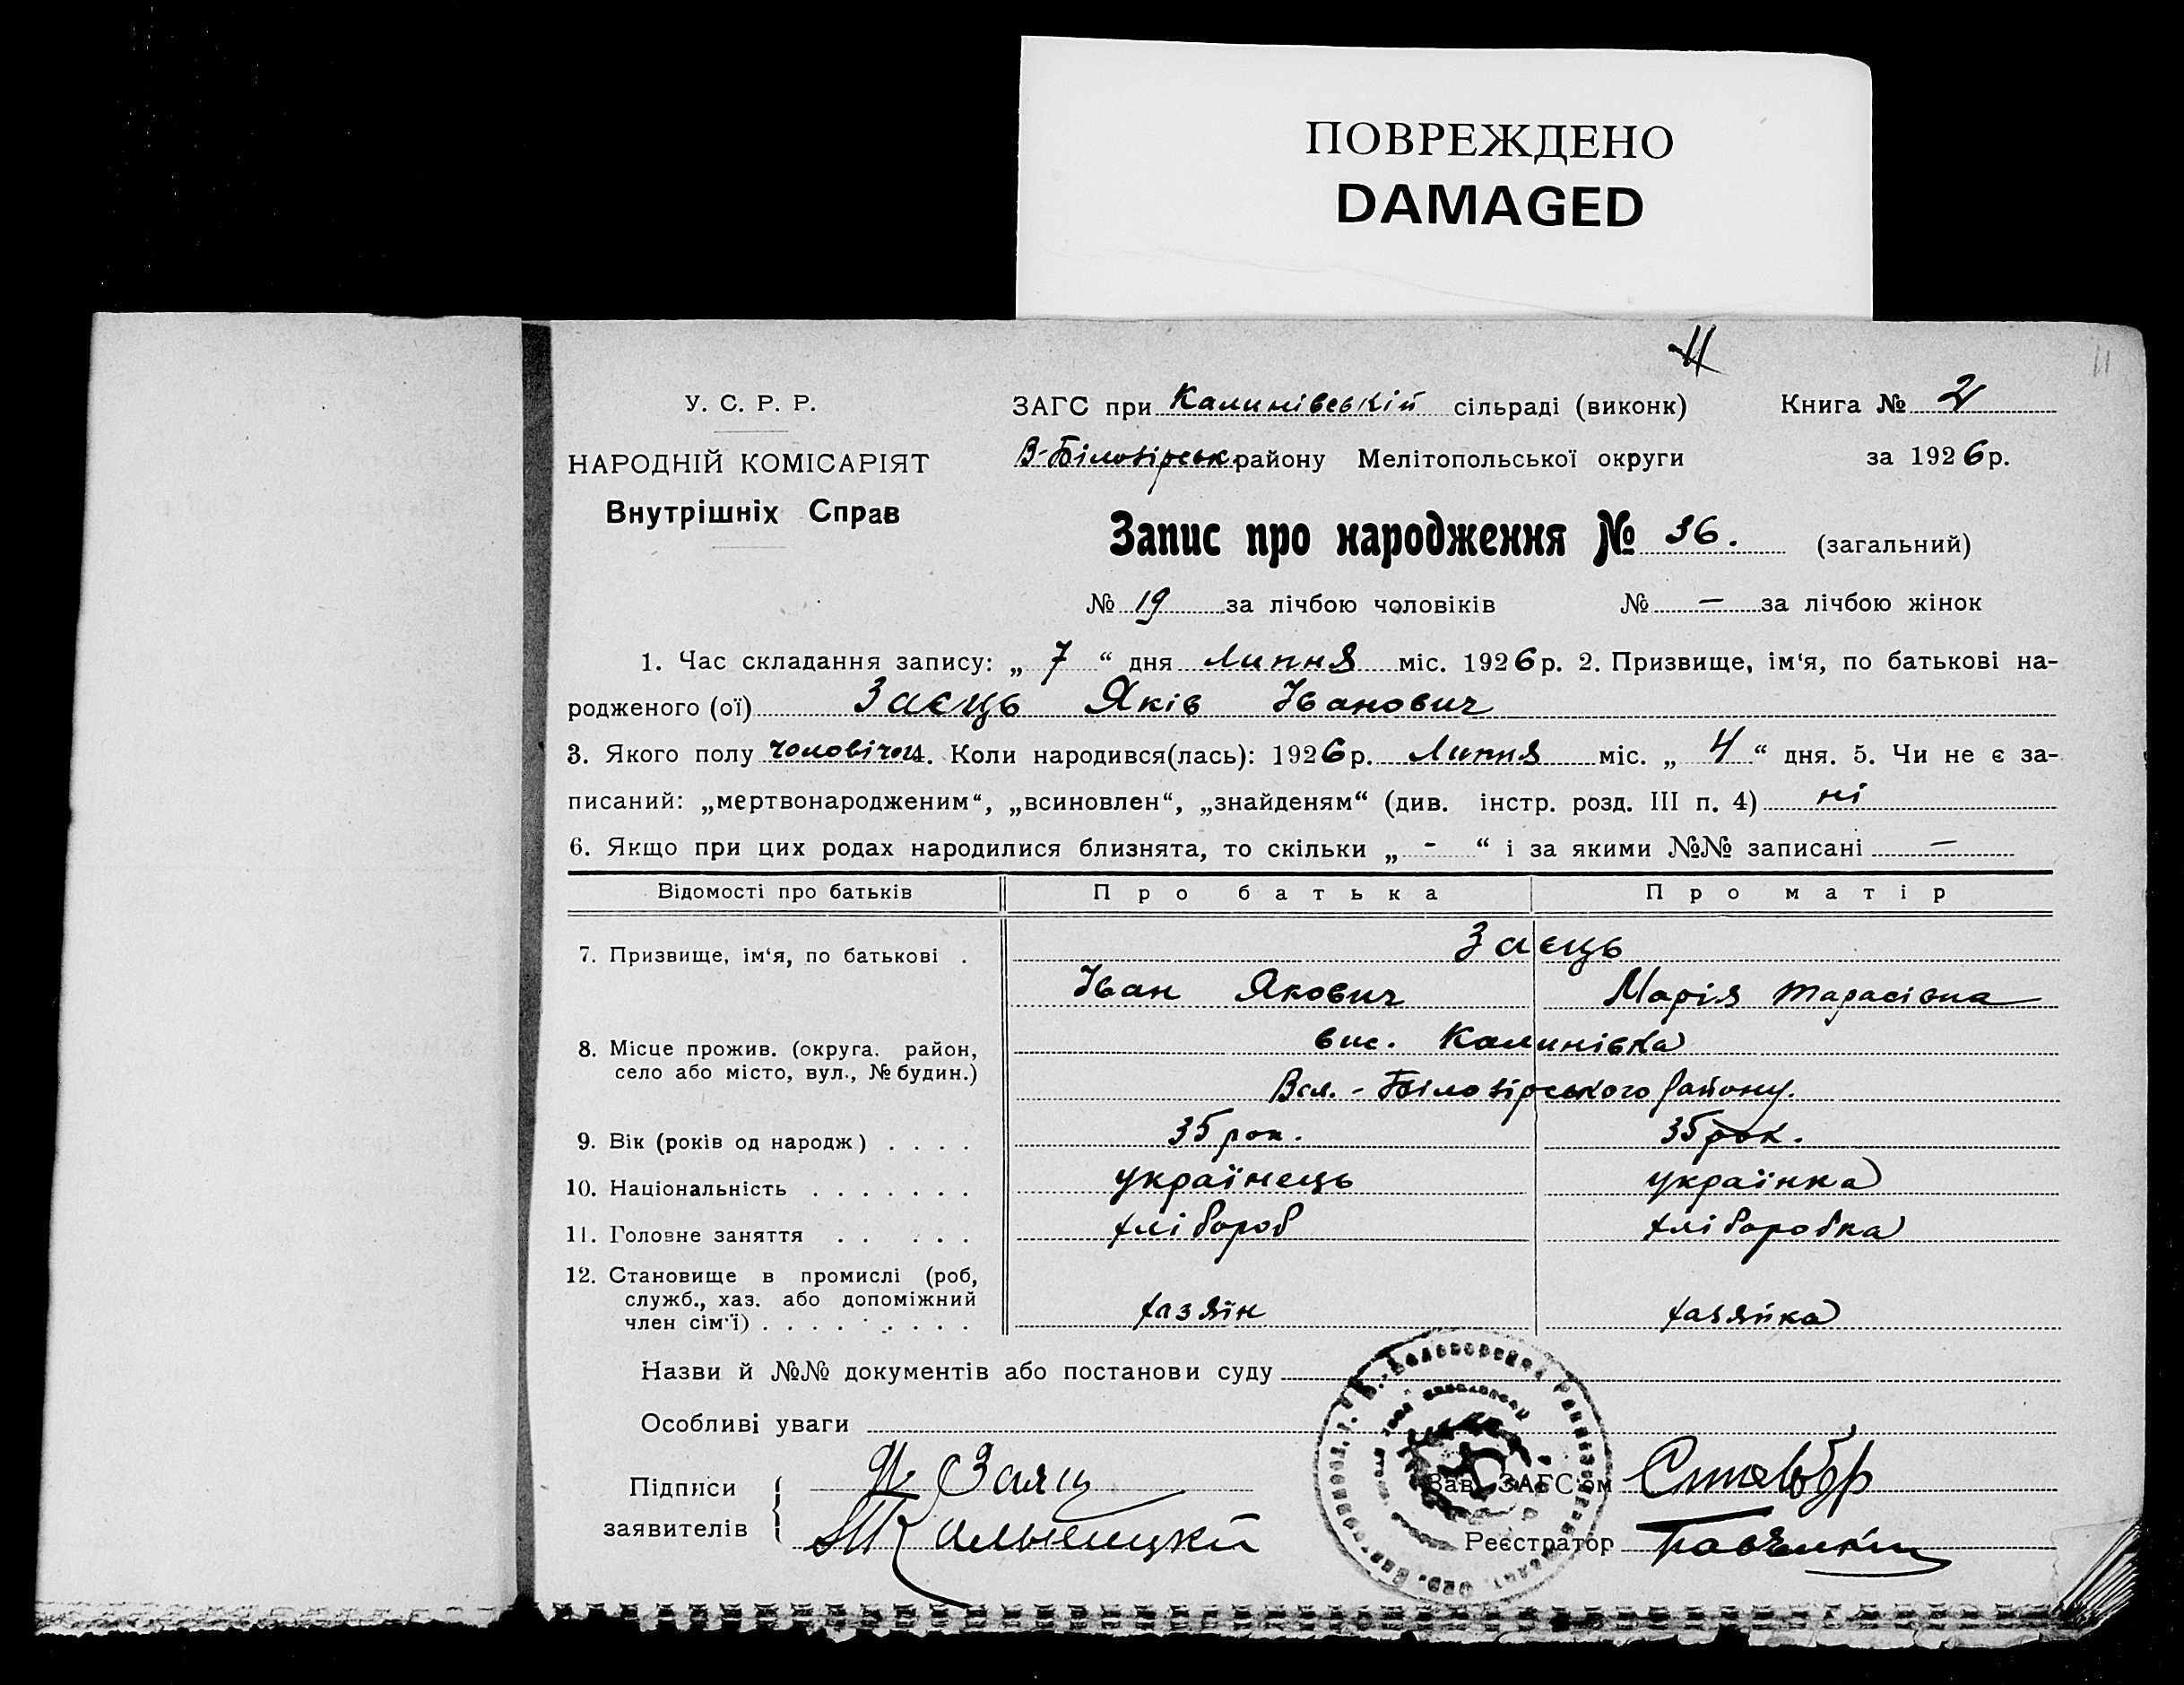 ПОВРЕЖДЕНО
DAMAGED
11
11
У. С. Р. Р.
ЗАГС при Калинівській сільраді (виконк) Книга № 2
НАРОДНІЙ КОМІСАРІЯТ
В-Білозірськ. району Мелітопольської округи за 1926 р.
Внутрішніх Справ
Запис про народження № 36. (загальний)
№ 19 за лічбою чоловіків № — за лічбою жінок
1. Час складання запису: „ 7 “ дня Липня міс. 1926 р. 2. Призвище, ім‘я, по батькові на-
родженого (ої) Заєць Яків Іванович
3. Якого полу чоловічої 4. Коли народився(лась): 1926 р. Липня міс. „ 4 “ дня. 5. Чи не є за-
писаний: „мертвонародженим“, „всиновлен“, „знайденям“ (див. інстр. розд. III п. 4) ні
6. Якщо при цих родах народилися близнята, то скільки „ - “ і за якими №№ записані —
Відомості про батьків Про батька Про матір
7. Призвище, ім‘я, по батькові . Заєць
Іван Якович Марія Тарасівна
8. Місце прожив. (округа. район, вис. Калинівка
село або місто, вул., № будин.)
Вел.-Білозірського району.
9. Вік (років од народж) . . . . 35 рок. 35 рок.
10. Національність . . . . . . . українець українка
11. Головне заняття . . . . . хлібороб хлібородка
12. Становище в промислі (роб,
служб., хаз. або допоміжний
член сім‘ї) . . . . . . . . . хазяїн хазяйка
Назви й №№ документів або постанови суду
Особливі уваги
Підписи Заяц Зав. ЗАГС‘ом
заявителів Реєстратор